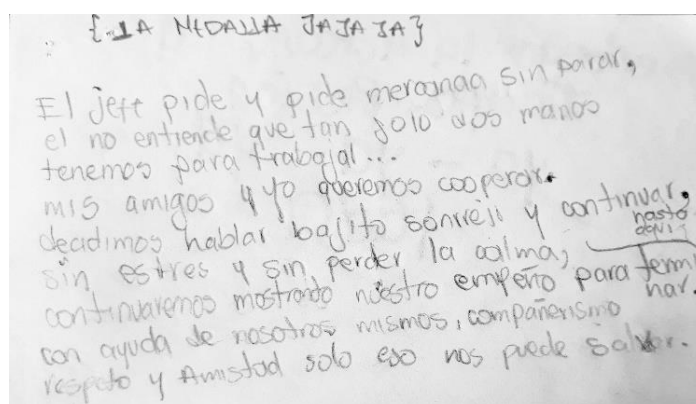 {LA MEDALLA JAJAJA}
El jefe pide y pide mercancia sin parar,
el no entiende que tan solo dos manos
tenemos para trabajal...
mis amigos y yo queremos cooperar.
decadimos hablar bajito sonrreji y continuar,
sin estres y sin perder la calma,
hasta
continuaremos mostrando nuestro empeño para termi
nar.
con ayuda de nosotros mismos, compañerismo
respeto y Amistad solo eso nos puede salvar.